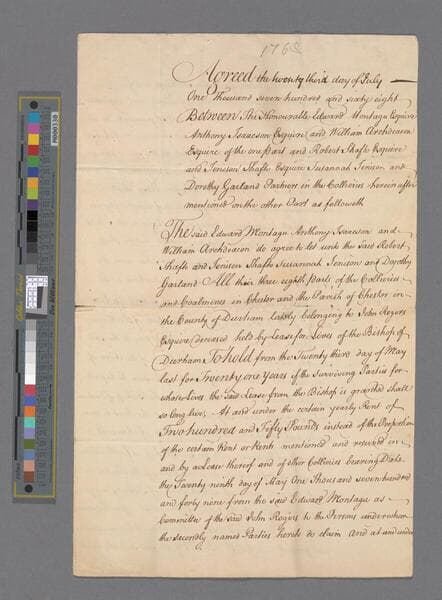 1768
Agreed the twenty third day of July
One Thousand seven hundred and sixty eight
Between The Honourable Edward Montagu Esquire
Anthony Isaacson Esquire and William Archdeacon
Esquire of the one Part and Robert Shafto Esquire
and Jenison Shafto Esquire Susannah Jenison and
Dorothy Garland Partners in the Collieries herein after
mentioned on the other Part as followeth
The said Edward Montagu Anthony Isaacson and
William Archdeacon do agree to let unto the said Robert
Shafto and Jenison Shafto Susannah Jenison and Dorothy
Garland All their three eighth parts of the Collieries
and Coalmines in Chester and the Parish of Chester in
the County of Durham lately belonging to John Rogers
Esquire deceased held by Lease for Lives of the Bishop of
Durham To hold from the Twenty third day of May
last for Twenty one Years if the surviving Parties for
whose Lives the said Lease from the Bishop is granted shall
so long live, At and under the certain yearly Rent of
Two hundred and Fifty Pounds instead of the Proportion
of the certain Rent or Rents mentioned and reserved in
and by a Lease thereof and of other Collieries bearing Date
the Twenty ninth day of May One Thousand seven hundred
and forty nine from the said Edward Montagu as
Committee of the said John Rogers to the Persons under whom
the secondly named Parties hereto do claim And at and under